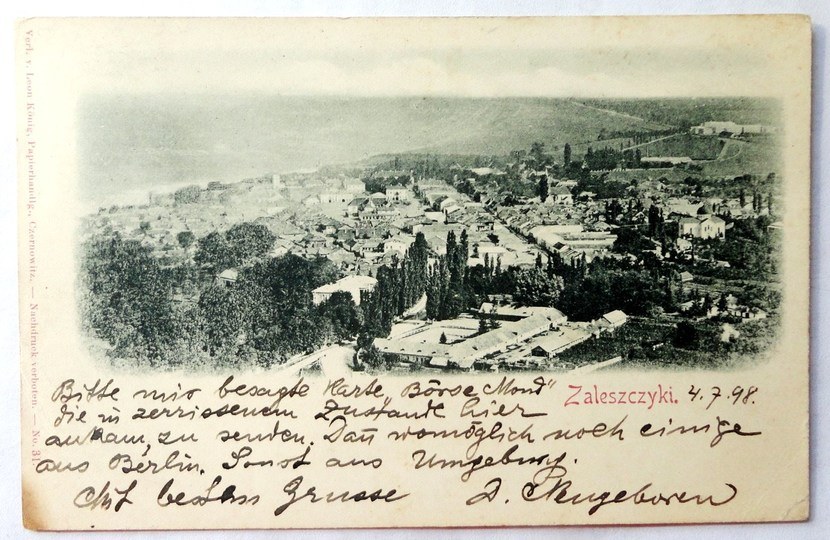 Verl. v. Leon König, Papierhandlg., Czernowitz. — Nachdruck verboten. — No. 31.
Zaleszczyki. 4.7.98.
Bitte mir besagte Karte „Börse Mond"
die in zerrissenem Zustande hier
ankam, zu senden. Dañ womöglich noch einige
aus Berlin. Sonst aus Umgebung.
Mit besten Grusse